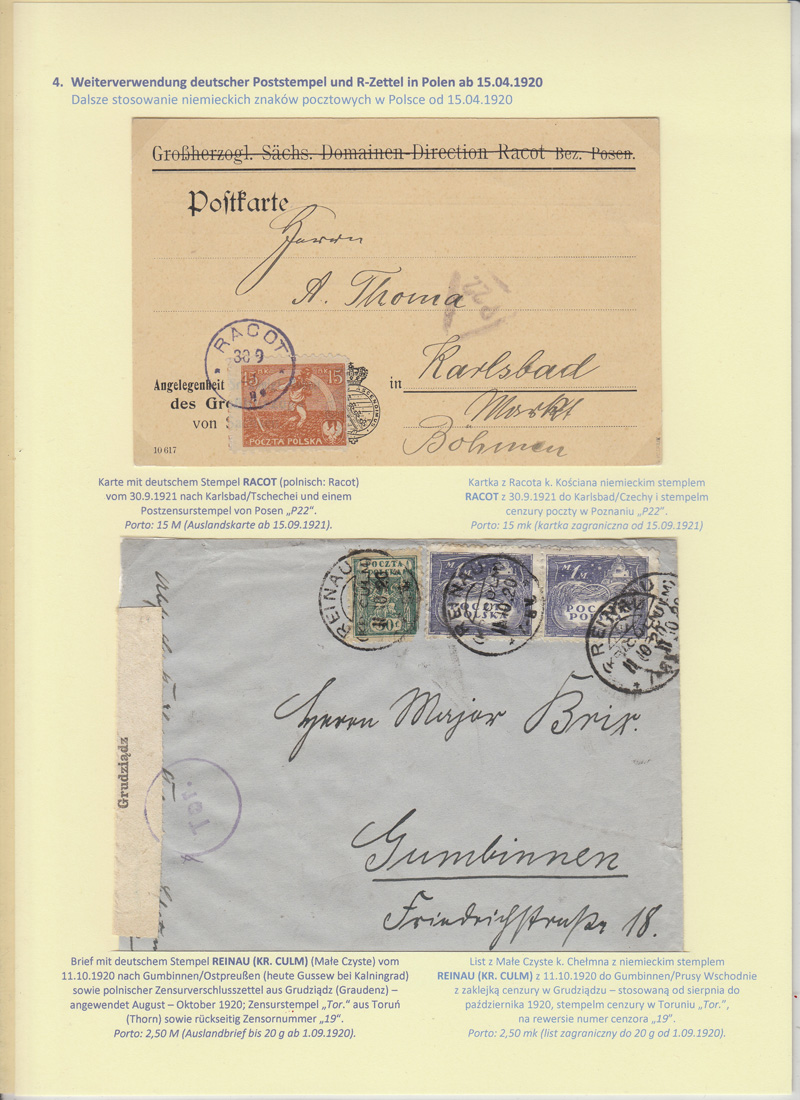 4. Weiterverwendung deutscher Poststempel und R-Zettel in Polen ab 15.04.1920
Dalsze stosowanie niemieckich znaków pocztowych w Polsce od 15.04.1920
Großherzogl. Sächs. Domainen-Direction Racot Bez. Posen.
Postkarte
Herrn
A. Thoma
P22
RACOT
30 9
15 MK 15
POCZTA POLSKA
Angelegenheit
des Gro
von S
in Karlsbad
Markt
Böhmen
10 617
Karte mit deutschem Stempel RACOT (polnisch: Racot)
vom 30.9.1921 nach Karlsbad/Tschechei und einem
Postzensurstempel von Posen „P22“.
Porto: 15 M (Auslandskarte ab 15.09.1921).
Kartka z Racota k. Kościana niemieckim stemplem
RACOT z 30.9.1921 do Karlsbad/Czechy i stempelm
cenzury poczty w Poznaniu „P22”.
Porto: 15 mk (kartka zagraniczna od 15.09.1921)
REINAU
(KR. CULM)
11.10.20
POCZTA
POLSKA
1 M
Grudziądz
Tor.
Herrn Major Brix.
Gumbinnen
Friedrichstraße 18.
Brief mit deutschem Stempel REINAU (KR. CULM) (Małe Czyste) vom
11.10.1920 nach Gumbinnen/Ostpreußen (heute Gussew bei Kalningrad)
sowie polnischer Zensurverschlusszettel aus Grudziądz (Graudenz) –
angewendet August – Oktober 1920; Zensurstempel „Tor.“ aus Toruń
(Thorn) sowie rückseitig Zensornummer „19“.
Porto: 2,50 M (Auslandbrief bis 20 g ab 1.09.1920).
List z Małe Czyste k. Chełmna z niemieckim stemplem
REINAU (KR. CULM) z 11.10.1920 do Gumbinnen/Prusy Wschodnie
z zaklejką cenzury w Grudziądzu – stosowaną od sierpnia do
października 1920, stempelm cenzury w Toruniu „Tor.”,
na rewersie numer cenzora „19”.
Porto: 2,50 mk (list zagraniczny do 20 g od 1.09.1920).